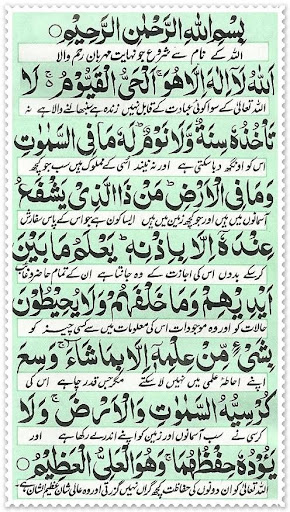 بِسْمِ اللّٰهِ الرَّحْمٰنِ الرَّحِيْمِ ○
اللہ کے نام سے شروع جو نہایت مہربان رحم والا
اَللّٰهُ لَآ اِلٰهَ اِلَّا هُوَ ۚ اَلْحَيُّ الْقَيُّوْمُ ۚ لَا
اللہ تعالیٰ کے سوا کوئی عبادت کے قابل نہیں زندہ ہے سنبھالنے والا ہے نہ
تَاْخُذُهٗ سِنَةٌ وَّلَا نَوْمٌ ؕ لَهٗ مَا فِي السَّمٰوٰتِ
اس کو اونگھ دبا سکتی ہے اور نہ نیند اسی کے مملوک ہیں سب جو کچھ
وَمَا فِي الْاَرْضِ ؕ مَنْ ذَا الَّذِيْ يَشْفَعُ
آسمانوں میں ہیں اور جو کچھ زمین میں ہیں ایسا کون ہے جو اس کے پاس سفارش
عِنْدَهٗٓ اِلَّا بِاِذْنِهٖ ؕ يَعْلَمُ مَا بَيْنَ
کر سکے بدوں اس کی اجازت کے وہ جانتا ہے ان کے تمام حاضر و غائب
اَيْدِيْهِمْ وَمَا خَلْفَهُمْ ۚ وَلَا يُحِيْطُوْنَ
حالات کو اور وہ موجودات اس کی معلومات میں سے کسی چیز کو
بِشَيْءٍ مِّنْ عِلْمِهٖٓ اِلَّا بِمَا شَآءَ ۚ وَسِعَ
اپنے احاطہ علمی میں نہیں لا سکتے مگر جس قدر چاہے اس کی
كُرْسِيُّهُ السَّمٰوٰتِ وَالْاَرْضَ ۚ وَلَا
کرسی نے سب آسمانوں اور زمین کو اپنے اندر لے رکھا ہے اور
يَـُٔوْدُهٗ حِفْظُهُمَا ۚ وَهُوَ الْعَلِيُّ الْعَظِيْمُ ○
اللہ تعالیٰ کو ان دونوں کی حفاظت کچھ گراں نہیں گزرتی اور وہ عالی شان عظیم الشان ہے